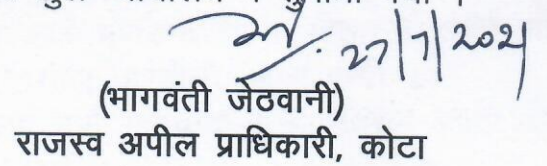 27/7/2021
(भागवंती जेठवानी)
राजस्व अपील प्राधिकारी, कोटा